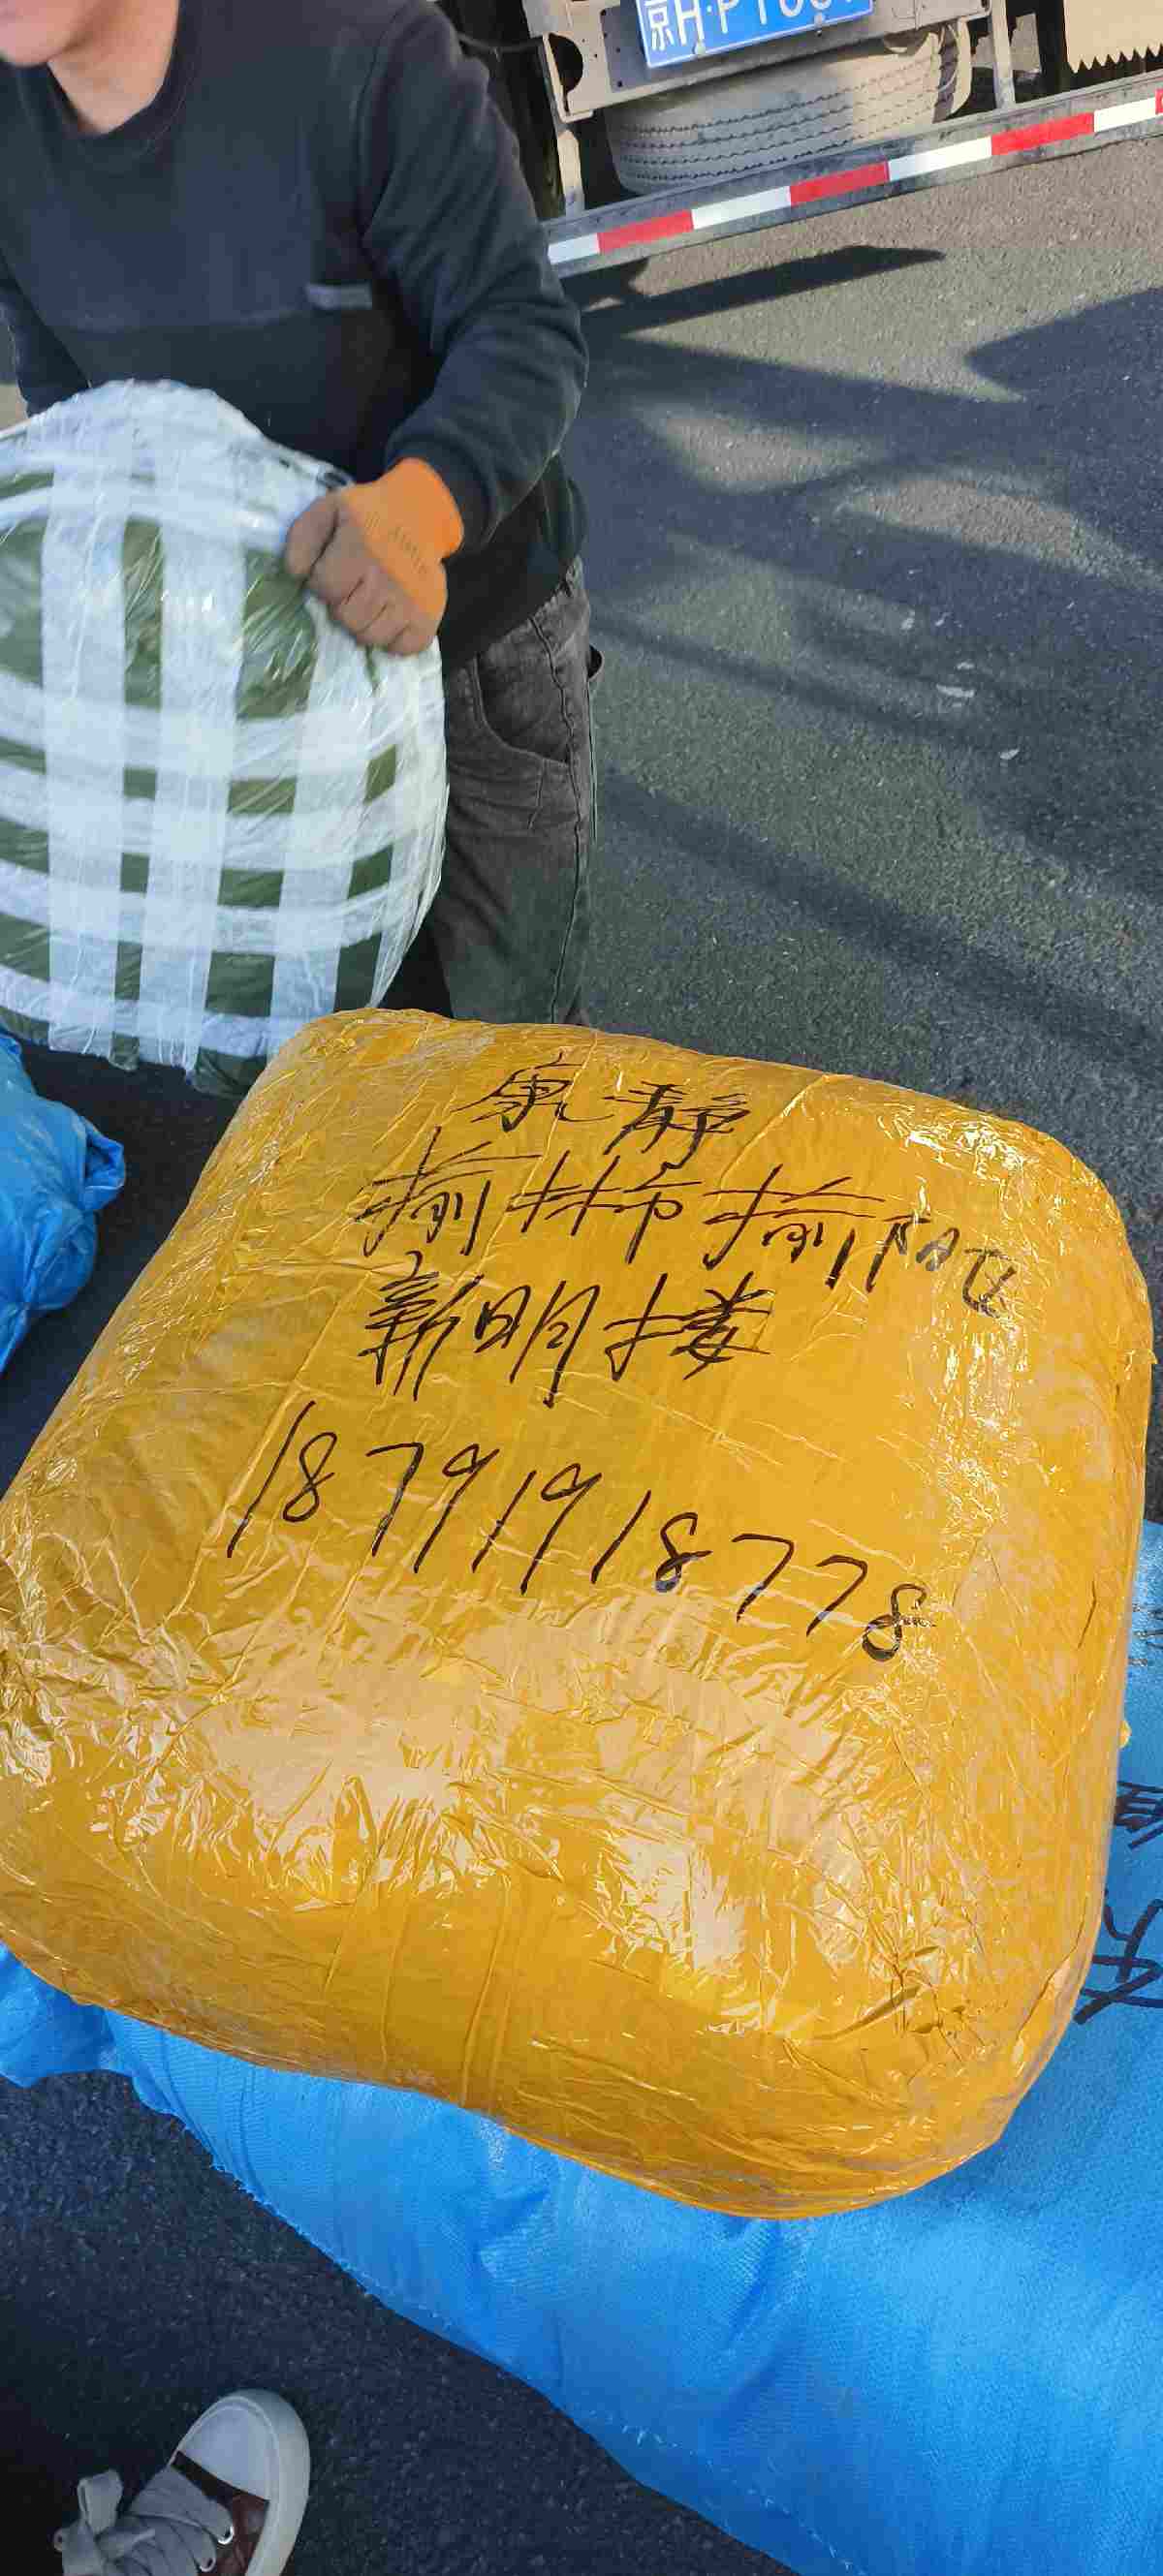 康静
榆林市榆阳区
新明楼
18791918778